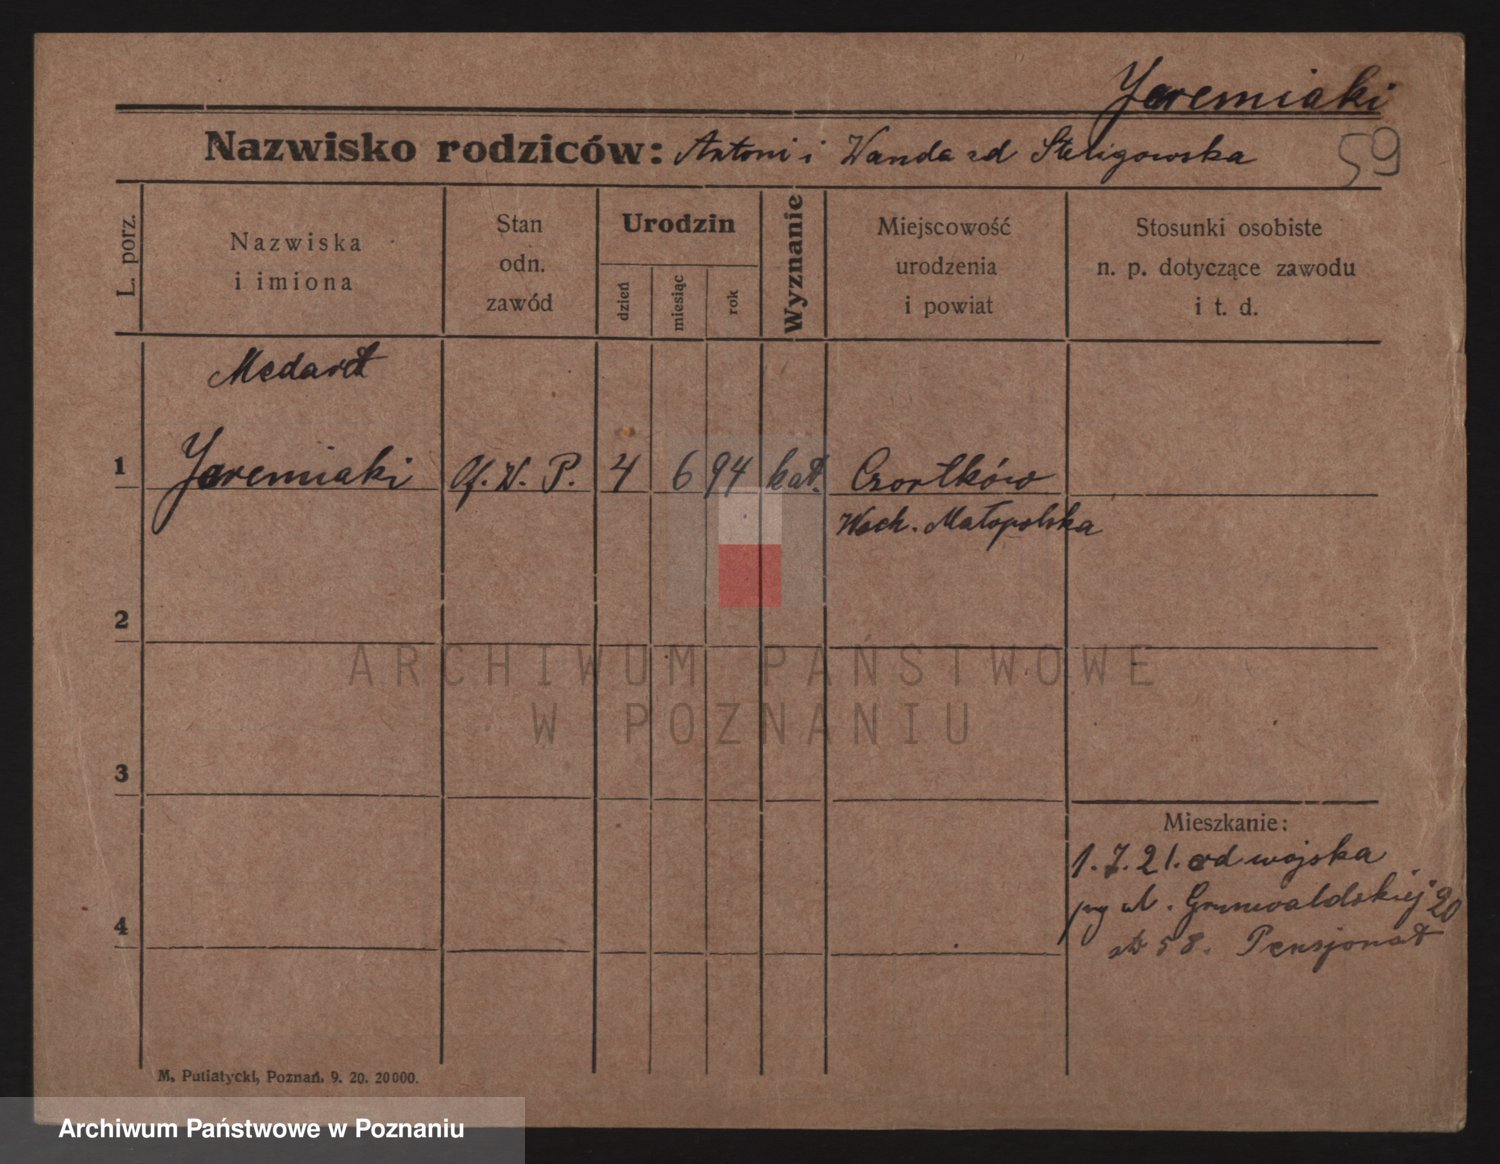 Jaremiaki
Nazwisko rodziców: Antoni i Wanda
59
L. porz.
Nazwiska
i imiona
Stan
odn.
zawód
Urodzin
dzień
miesiąc
rok
Wyznanie
Miejscowość
urodzenia
i powiat
Stosunki osobiste
n. p. dotyczące zawodu
i t. d.
Medard
1 Jaremiaki Of. W. P. 4 6 94 kat. Czortków
Wsch. Małopolska
2
ARCHIWUM PAŃSTWOWE
W POZNANIU
3
Mieszkanie:
1.7.21. od wojska
przy ul. Grunwaldskiej 20
58. Pensjonat
4
M. Putiatycki, Poznań. 9. 20. 20000.
Archiwum Państwowe w Poznaniu